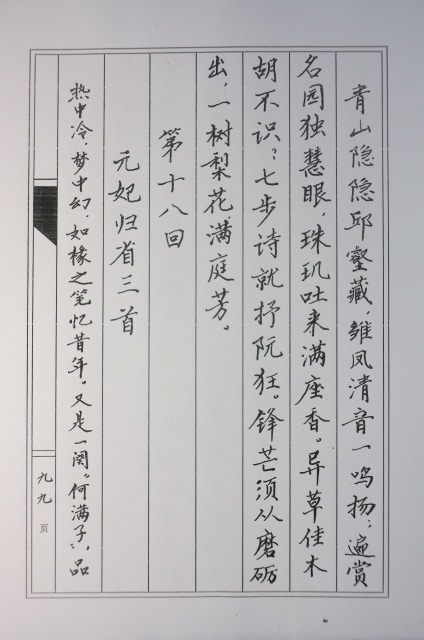 青山隐隐邱壑藏，雏凤清音一鸣扬；遍赏
名园独慧眼，珠玑吐来满座香。异草佳木
胡不识？七步诗就抒阮狂。锋芒须从磨砺
出，一树梨花满庭芳。
第十八回
元妃归省三首
热中冷，梦中幻，如椽之笔忆昔年。又是一阕“何满子”，品
九九页